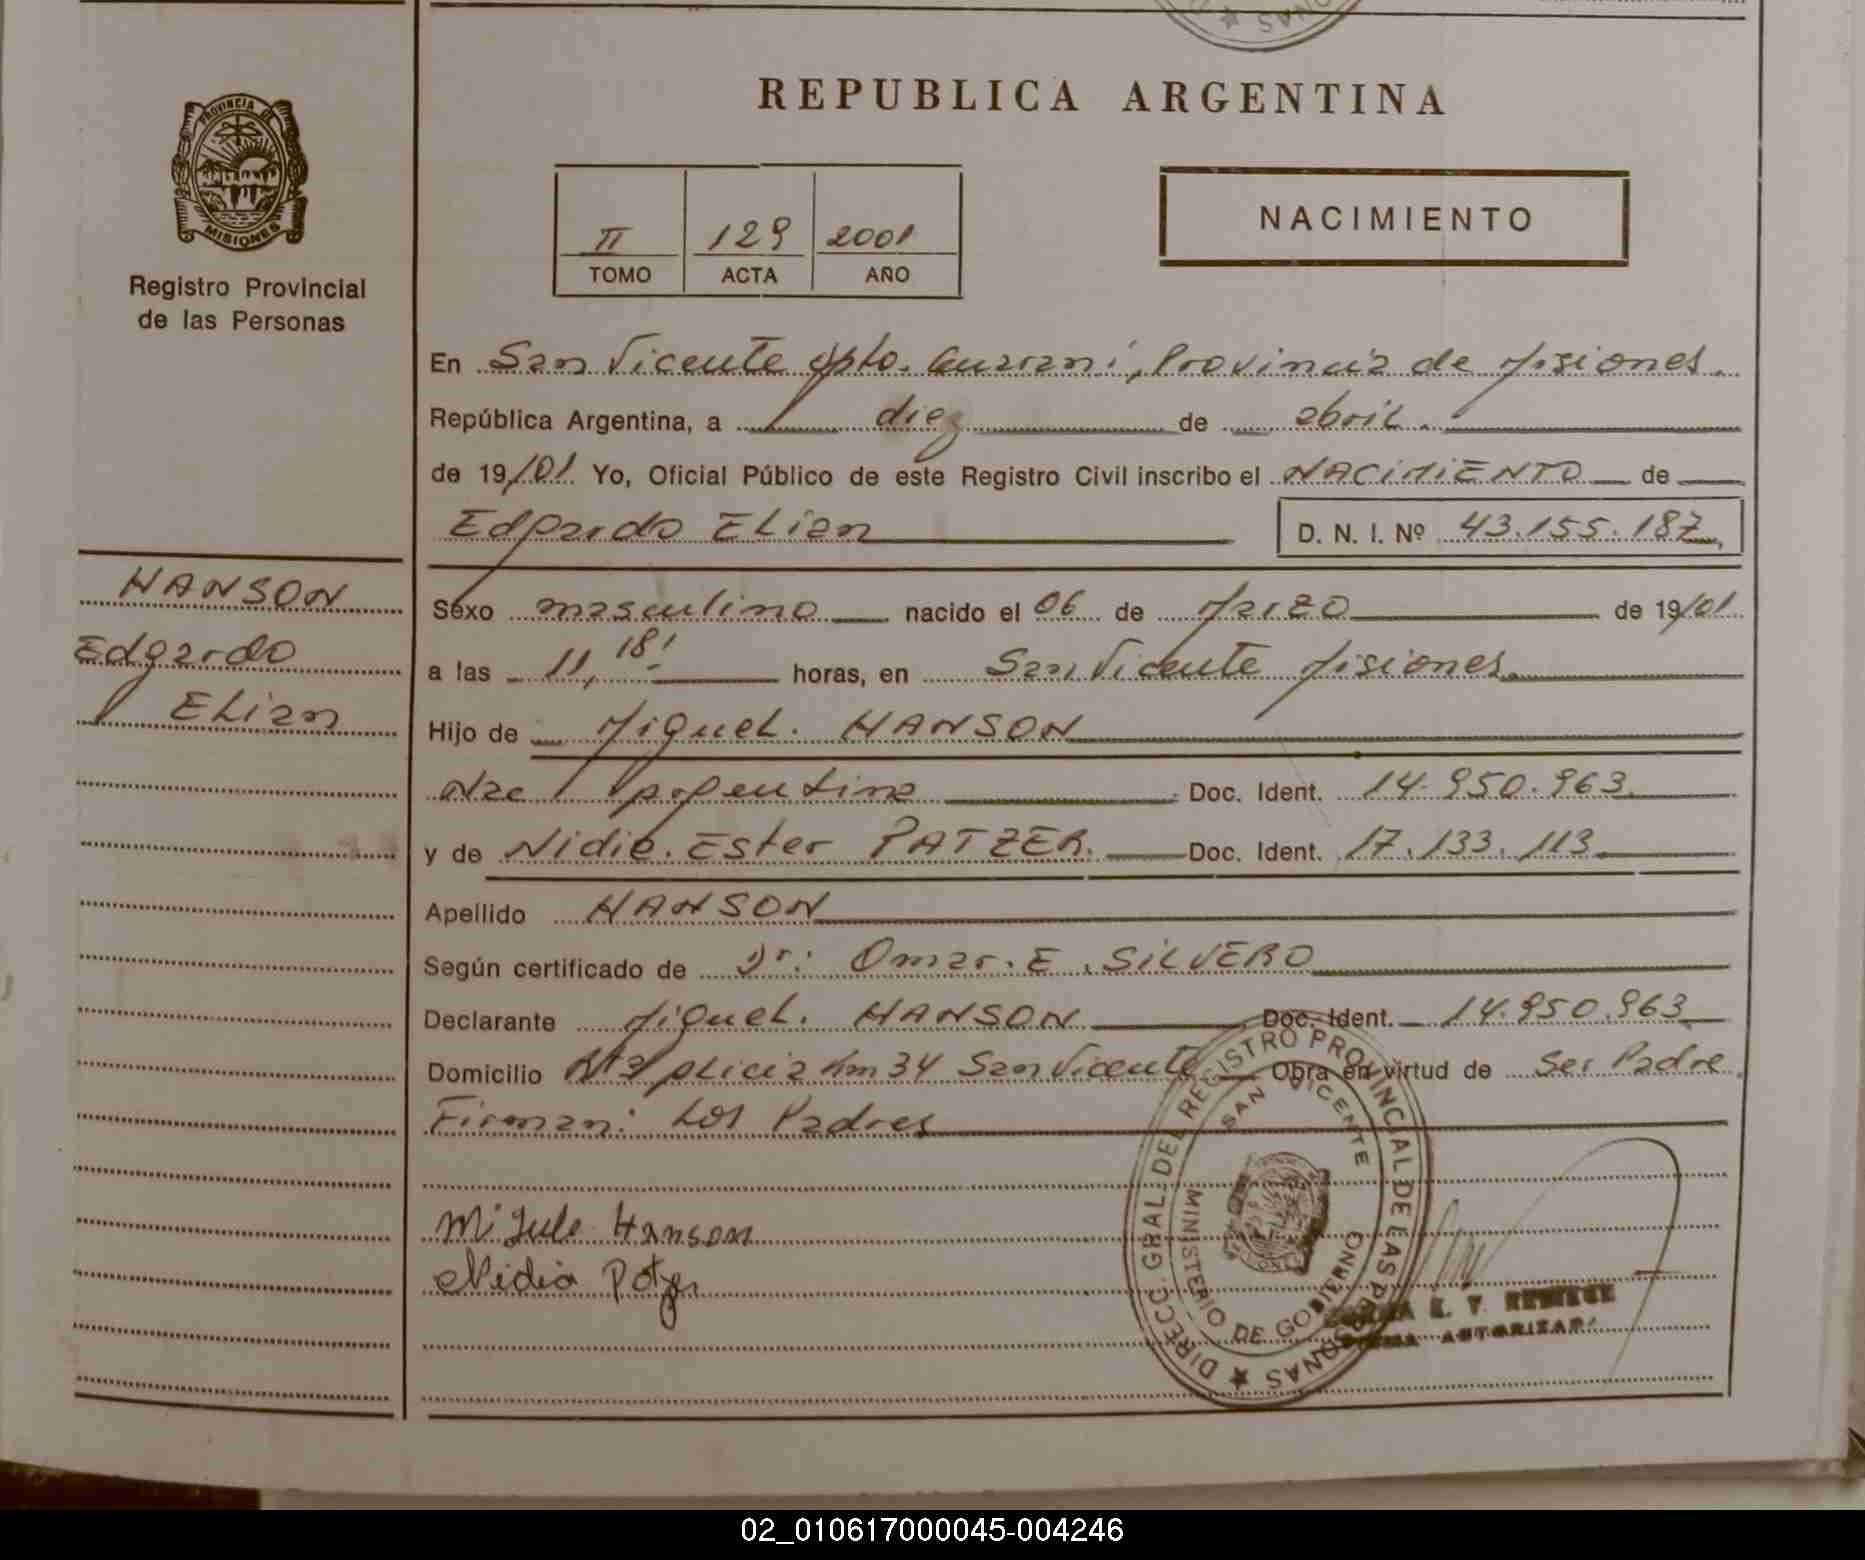 REPUBLICA ARGENTINA
PROVINCIA DE
MISIONES
Registro Provincial
de las Personas
II 129 2001
TOMO ACTA AÑO
NACIMIENTO
En San Vicente Dpto. Guarani, Provincia de Misiones.
República Argentina, a diez de abril.
de 19/01. Yo, Oficial Público de este Registro Civil inscribo el NACIMIENTO de
Edgardo Elian D. N. I. Nº 43.155.187
HANSON
Edgardo
Elian
Sexo masculino nacido el 06 de Marzo de 19/01
a las 11,18! horas, en San Vicente Misiones.
Hijo de Miguel. HANSON
Nac Argentina Doc. Ident. 14.950.963.
y de Nidia. Ester PATZER. Doc. Ident. 17.133.113
Apellido HANSON
Según certificado de Dr: Omar. E. SILVERO
Declarante Miguel. HANSON Doc. Ident. 14.950.963
Domicilio Km 34 San Vicente Obra en virtud de Ser Padre.
Firman: Los Padres
Hanson
Nidia
DIRECC. GRAL. DEL REGISTRO PROVINCIAL DE LAS PERSONAS
SAN VICENTE
MINISTERIO DE GOBIERNO
02_010617000045-004246